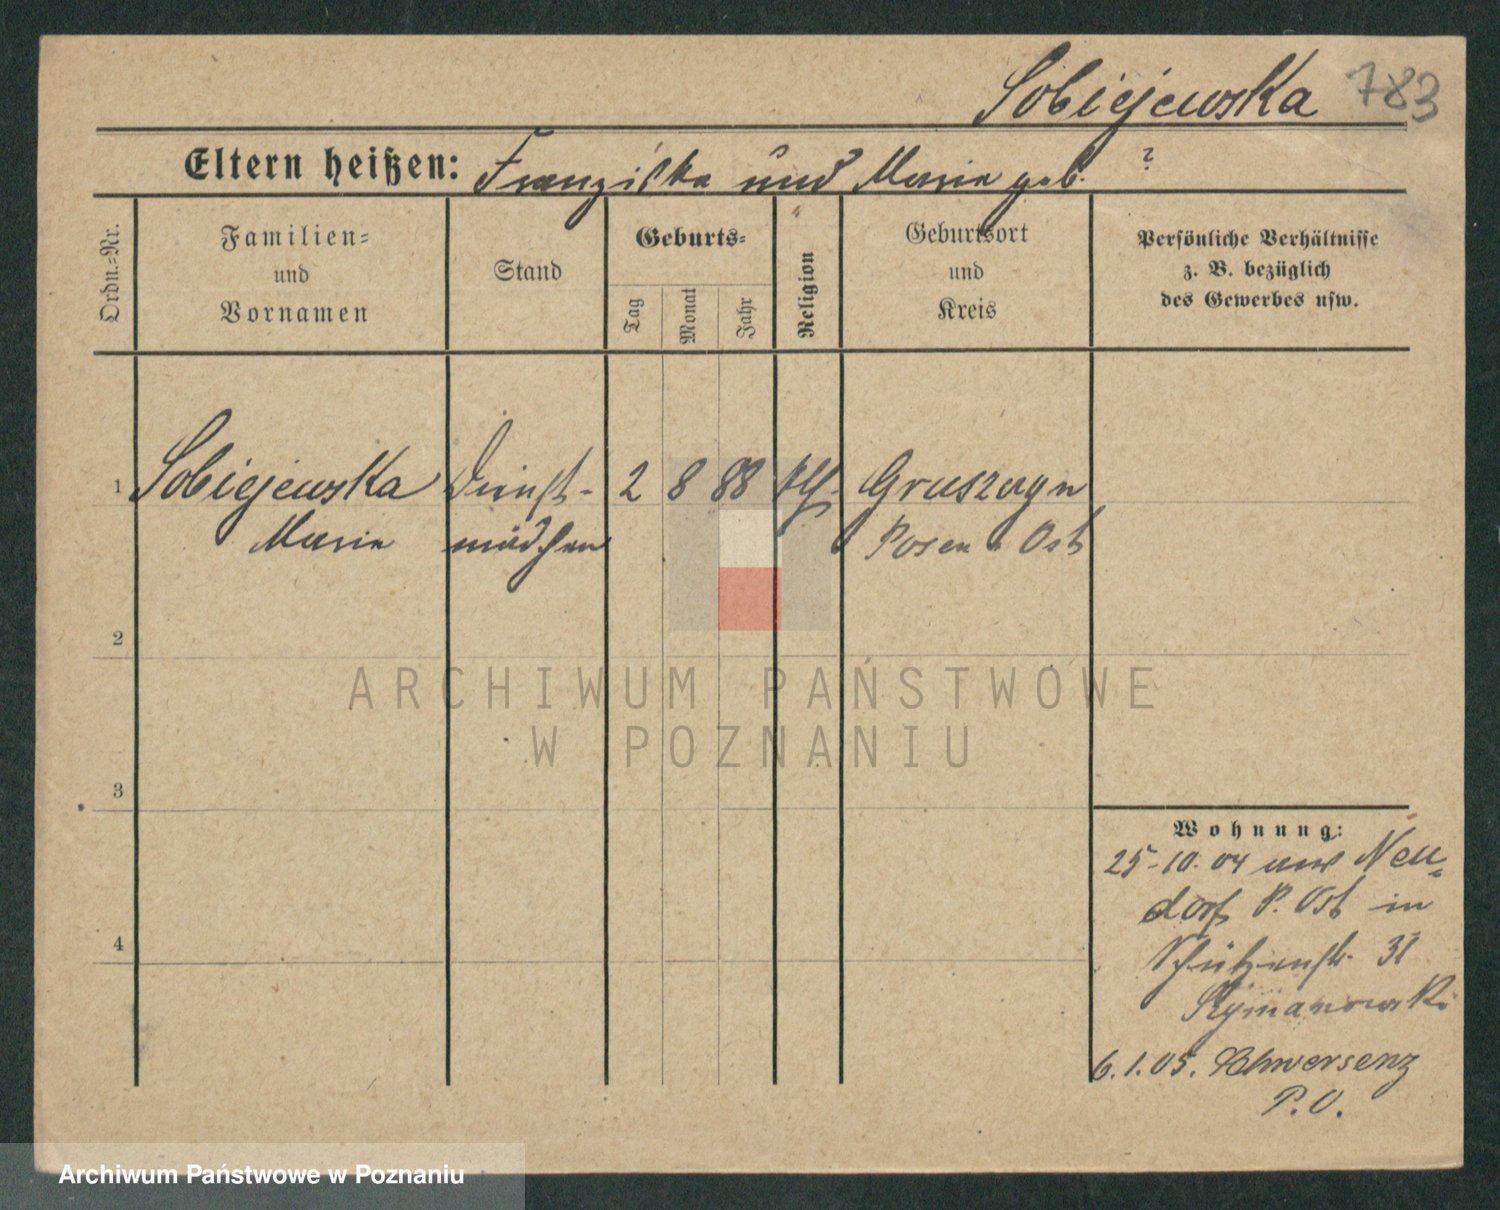 Sobiejewska 783
Eltern heißen: Franziska und Marie geb. ?
Ordn.-Nr.
Familien-
und
Vornamen
Stand
Geburts-
Tag
Monat
Jahr
Religion
Geburtsort
und
Kreis
Persönliche Verhältnisse
z. B. bezüglich
des Gewerbes usw.
1 Sobiejewska Dienst- 2 8 88 kth. Gruszczyn
Marie mädchen Posen Ost
2
ARCHIWUM PAŃSTWOWE
W POZNANIU
3
Wohnung:
25-10.04 aus Neu-
dorf P. Ost in
Schützenstr. 31
Szymanowski
4
6.1.05. Schwersenz
P.O.
Archiwum Państwowe w Poznaniu